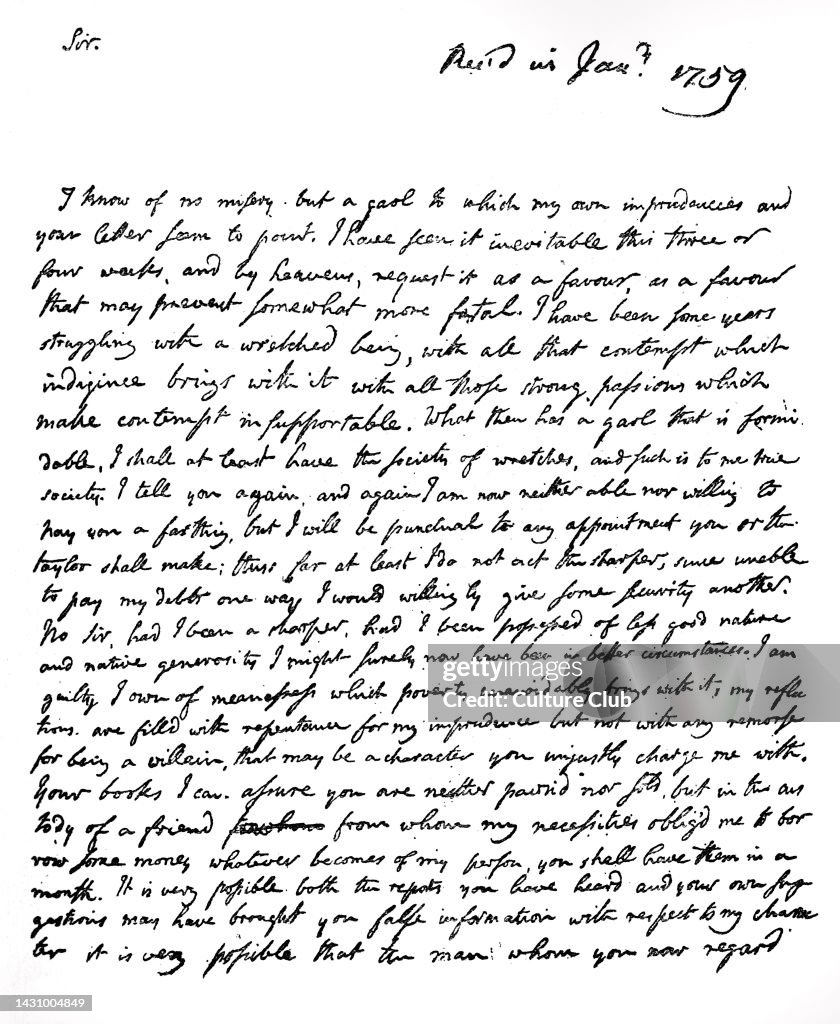 Sir.
Rec'd in Jan.y 1759
I know of no misery but a gaol to which my own imprudencies and
your letter seem to point. I have seen it inevitable this three or
four weeks, and by heavens, request it as a favour, as a favour
that may prevent somewhat more fatal. I have been some years
struggling with a wretched being, with all that contempt which
indigince brings with it with all those strong passions which
make contempt insupportable. What then has a gaol that is formi
dable, I shall at least have the society of wretches, and such is to me true
society. I tell you again and again I am now neither able nor willing to
pay you a farthing, but I will be punctual to any appointment you or the
taylor shall make; thus far at least I do not act the sharper, since unable
to pay my debts one way I would willingly give some security another.
No Sir, had I been a sharper, had I been possessed of less good nature
and native generosity I might surely now have been in better circumstances. I am
guilty I own of meanesses which poverty unavoidably brings with it, my reflec
tions are filld with repentance for my imprudence but not with any remorse
for being a villain, that may be a character you unjustly charge me with.
Your books I can assure you are neither pawn'd nor sold, but in the cus
tody of a friend from whom my necessities oblig'd me to bor
row some money, whatever becomes of my person, you shall have them in a
month. It is very possible both the reports you have heard and your own sug
gestions may have brought you false information with respect to my charac
ter it is very possible that the man whom you now regard
gettyimages
Credit: Culture Club
1431004849